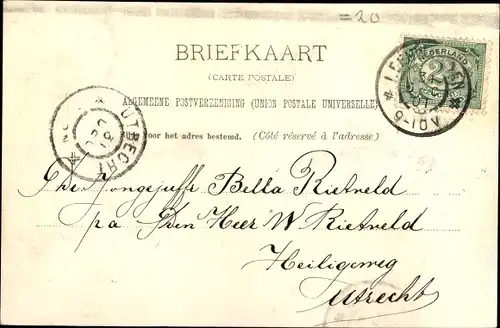 =20
BRIEFKAART
(CARTE POSTALE)
ALGEMEENE POSTVEREENIGING (UNION POSTALE UNIVERSELLE)
voor het adres bestemd. (Côté réservé à l'adresse)
NEDERLAND
2½
UTRECHT
De Jongejuffr Bella Rietveld
pa Den Heer W Rietveld
Heiligeweg
Utrecht